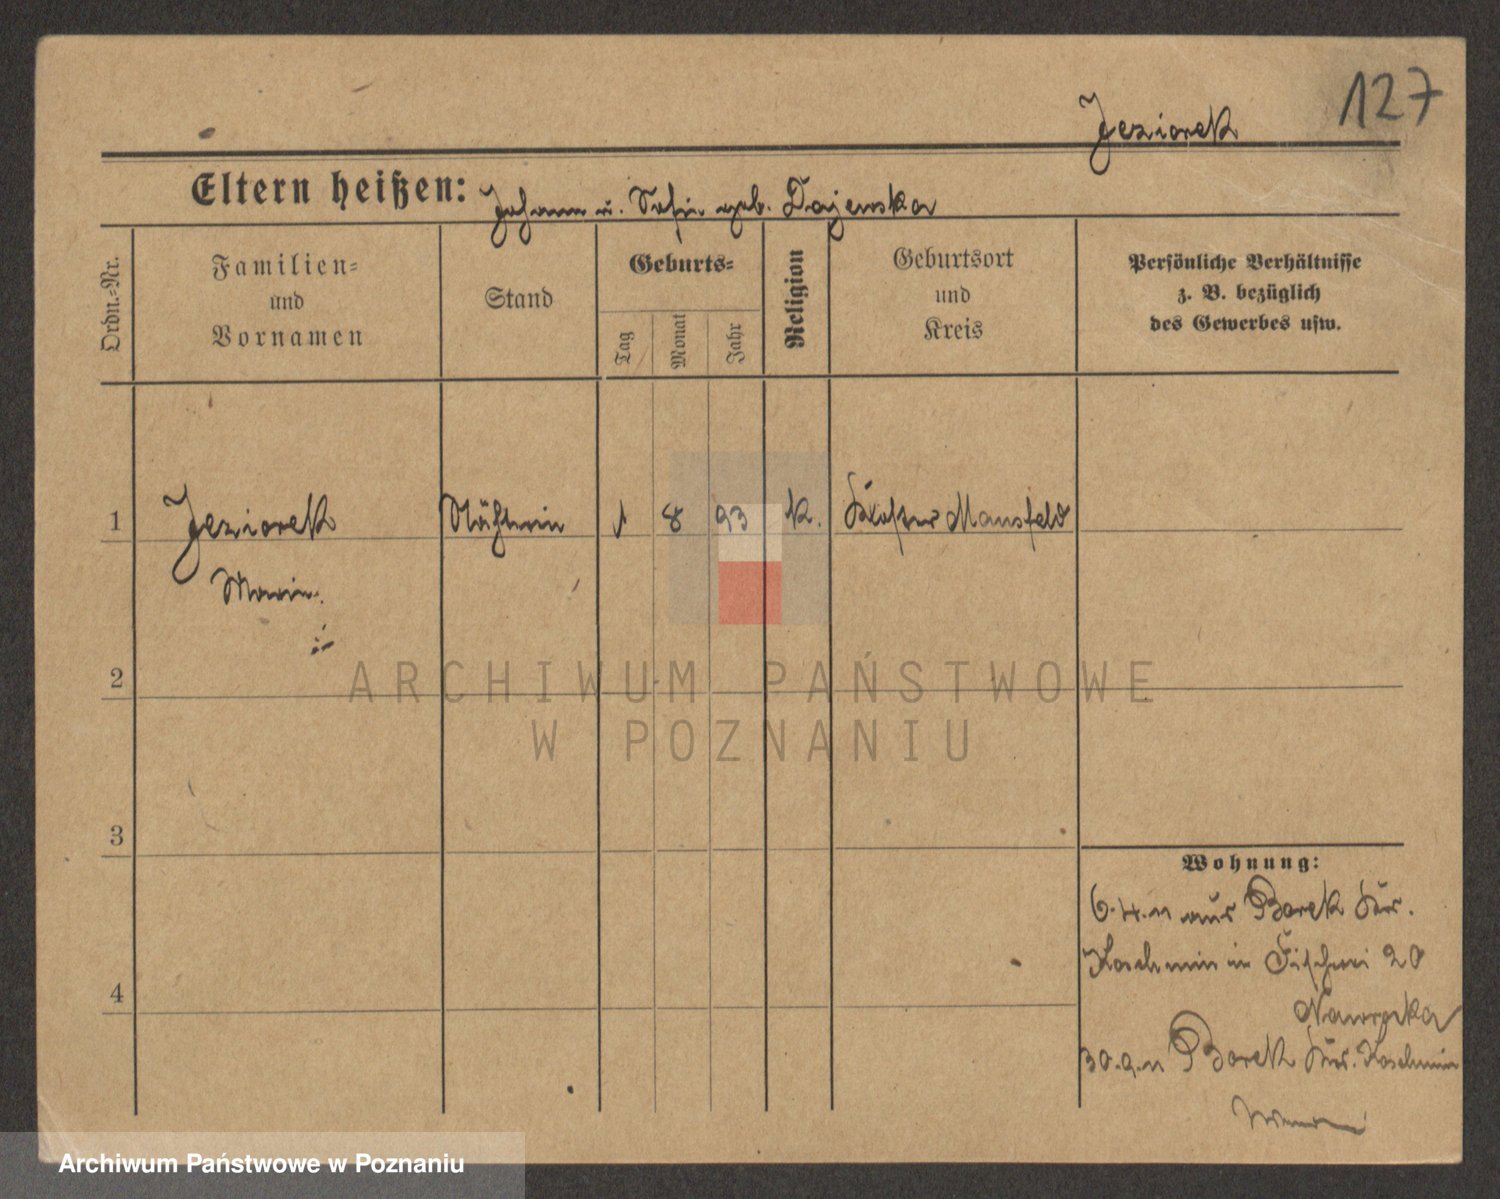 127
Jeziorek
Eltern heißen: Johann u. Sofie geb. Dajewska
Ordn.-Nr.
Familien-
und
Vornamen
Stand
Geburts-
Tag
Monat
Jahr
Religion
Geburtsort
und
Kreis
Persönliche Verhältnisse
z. B. bezüglich
des Gewerbes usw.
1 Jeziorek Näherin 1 8 93 k. Kloster Mansfeld
Marie
2
ARCHIWUM PAŃSTWOWE
W POZNANIU
3
Wohnung:
6.4.11 aus Borek Krs.
Koschmin in Fischerei 20
4
30.9.11 Borek Krs. Koschmin
Archiwum Państwowe w Poznaniu